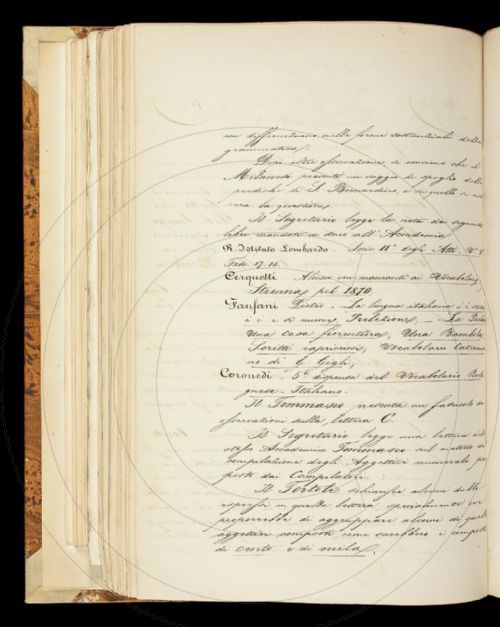 non differenziano nelle forme sostanziali della
grammatica.
Dopo altre osservazioni si conviene che il
Milanesi presenti un saggio di spoglio delle
prediche di S. Bernardino, e in quello si
la questione.
Il Segretario legge la nota dei seguenti
libri mandati in dono all'Accademia
R. Istituto Lombardo. Serie IIª degli Atti, V.
Fasc. 17. 18.
Cerquetti. Alcune voci mancanti ai Vocabolari,
Strenna pel 1870.
Fanfani Pietro. La lingua italiana
è e si muove, Prelezione, — La Paola
Una casa fiorentina, Una Bambola
Scritti capricciosi, Vocabolario Caterinia-
no di G. Gigli,
Coronedi. 5ª dispensa del Vocabolario Bolo-
gnese-Italiano.
Il Tommaseo presenta un fascicolo di
osservazioni sulla lettera C.
Il Segretario legge una lettera dello
stesso Accademico Tommaseo sul metodo di
compilazione degli Aggettivi numerali
dai Compilatori.
Il Tortoli schiarisce alcuni dubbi
espressi in quella lettera, specialmente
proporrebbe di aggruppare alcuni di quelli
aggettivi composti come sarebbero i composti
di cento e di mila,